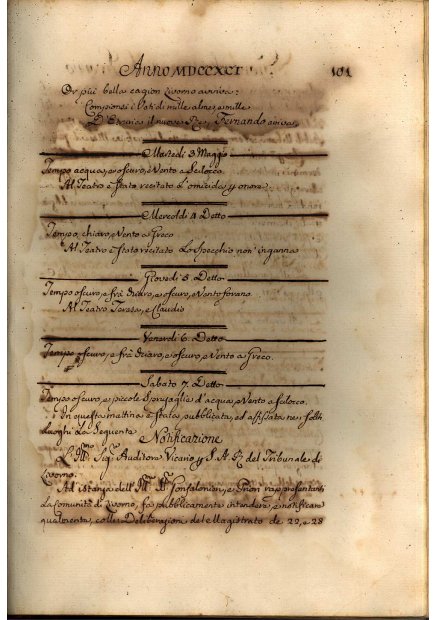 Anno MDCCXCI 101
Or più bella cagion Livorno avviva:
Compionsi i Voti di mille alme, e mille
D'Etruria il nuovo Rè, Fernando arriva.
Martedì 3 Maggio
Tempo acqua, e oscuro, e Vento a Scilocco
Al Teatro è stato recitato L'omicida p onore
Mercoldì 4 Detto
Tempo, chiaro, e Vento a Greco
Al Teatro è stato recitato Lo Specchio non inganna
Giovedì 5. Detto
Tempo oscuro, e frà chiaro, e oscuro, e Vento forano
Al Teatro Teresa, e Claudio
Venerdì 6. Detto
Tempo oscuro, e frà chiaro, e oscuro, e Vento a Greco.
Sabato 7. Detto
Tempo oscuro, e piccole Spruzaglie d'acqua, e Vento a Scilocco.
In questa mattina è stata pubblicata, ed affissata nei soliti
Luoghi La Seguente
Notificazione
L'Ill.mo Sig.r Auditore Vicario p S. A. R. del Tribunale di
Livorno.
Ad istanza dell' Ill.mi Gonfaloniere, e Priori rappresentanti
La Comunità di Livorno, fà pubblicamente intendere, e notificare
qualmente, colle Deliberazioni del Magistrato de 22, e 28